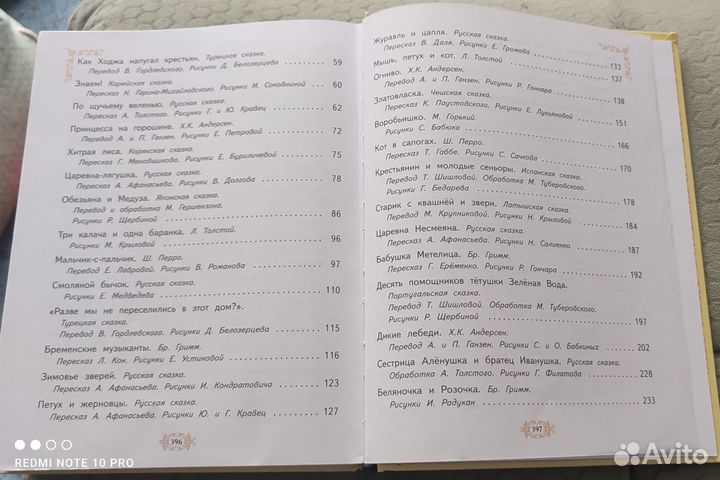 Как Ходжа напугал крестьян. Турецкая сказка.
Перевод В. Гордлевского. Рисунки Д. Белозерцева 59
Знаем! Корейская сказка.
Пересказ Н. Гарина-Михайловского. Рисунки И. Соковниной 60
По щучьему веленью. Русская сказка.
Пересказ А. Толстого. Рисунки Г. и Ю. Кравец 62
Принцесса на горошине. Х.К. Андерсен.
Перевод А. и П. Ганзен. Рисунки Е. Петровой 72
Хитрая лиса. Корякская сказка.
Пересказ Г. Меновщикова. Рисунки Е. Буриличевой 75
Царевна-лягушка. Русская сказка.
Пересказ А. Афанасьева. Рисунки В. Долгова 78
Обезьяна и Медуза. Японская сказка.
Перевод и обработка М. Гершензона.
Рисунки Р. Щербиной 86
Три калача и одна баранка. Л. Толстой.
Рисунки М. Крыловой 96
Мальчик-с-пальчик. Ш. Перро.
Перевод Е. Лавровой. Рисунки В. Романова 97
Смоляной бычок. Русская сказка.
Рисунки Е. Медведева 110
«Разве мы не переселились в этот дом?».
Турецкая сказка.
Перевод В. Гордлевского. Рисунки Д. Белозерцева 115
Бременские музыканты. Бр. Гримм.
Пересказ Л. Кон. Рисунки Е. Устиновой 116
Зимовье зверей. Русская сказка.
Пересказ А. Афанасьева. Рисунки И. Кондратовича 123
Петух и жерновцы. Русская сказка.
Пересказ А. Афанасьева. Рисунки Ю. и Г. Кравец 127
396
Журавль и цапля. Русская сказка.
Пересказ В. Даля. Рисунки Е. Громова 133
Мышь, петух и кот. Л. Толстой 137
Огниво. Х.К. Андерсен.
Перевод А. и П. Ганзен. Рисунки Р. Гончара 138
Златовласка. Чешская сказка.
Пересказ К. Паустовского. Рисунки Е. Лукьяновой 151
Воробьишко. М. Горький.
Рисунки С. Бабюка 166
Кот в сапогах. Ш. Перро.
Пересказ Т. Габбе. Рисунки С. Сачкова 170
Крестьянин и молодые сеньоры. Испанская сказка.
Перевод Т. Шишловой. Обработка М. Туберовского.
Рисунки Г. Бедарева 178
Старик с квашнёй и звери. Латышская сказка.
Перевод М. Крупниковой. Рисунки Н. Крыловой 184
Царевна Несмеяна. Русская сказка.
Пересказ А. Афанасьева. Рисунки Н. Салиенко 187
Бабушка Метелица. Бр. Гримм.
Пересказ Г. Ерёменко. Рисунки Р. Гончара 192
Десять помощников тётушки Зелёная Вода.
Португальская сказка.
Перевод Т. Шишловой. Обработка М. Туберовского.
Рисунки Р. Щербиной 197
Дикие лебеди. Х.К. Андерсен.
Перевод А. и П. Ганзен. Рисунки С. и О. Бобкиных 202
Сестрица Алёнушка и братец Иванушка. Русская сказка.
Обработка А. Толстого. Рисунки Г. Филатова 228
Беляночка и Розочка. Бр. Гримм.
Рисунки И. Радукан 233
397
REDMI NOTE 10 PRO
Avito